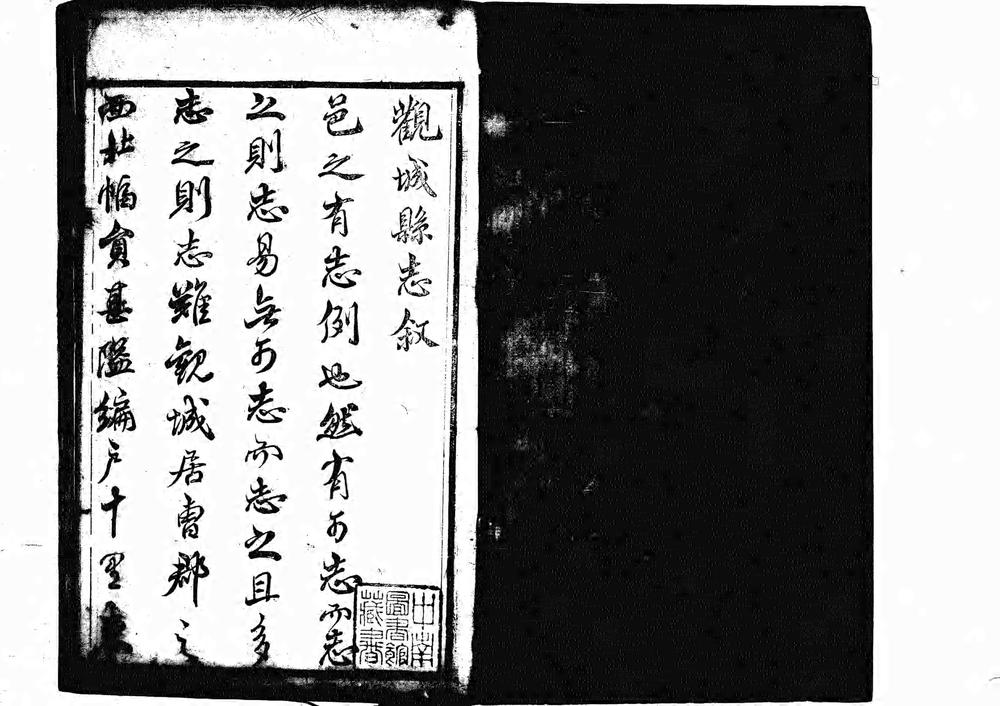 觀城縣志叙
邑之有志例也然有可志而志
之則志易無可志而志之且多
志之則志難觀城居曹郡之
西北幅員甚隘編戶十里
中南
圖書館
藏書